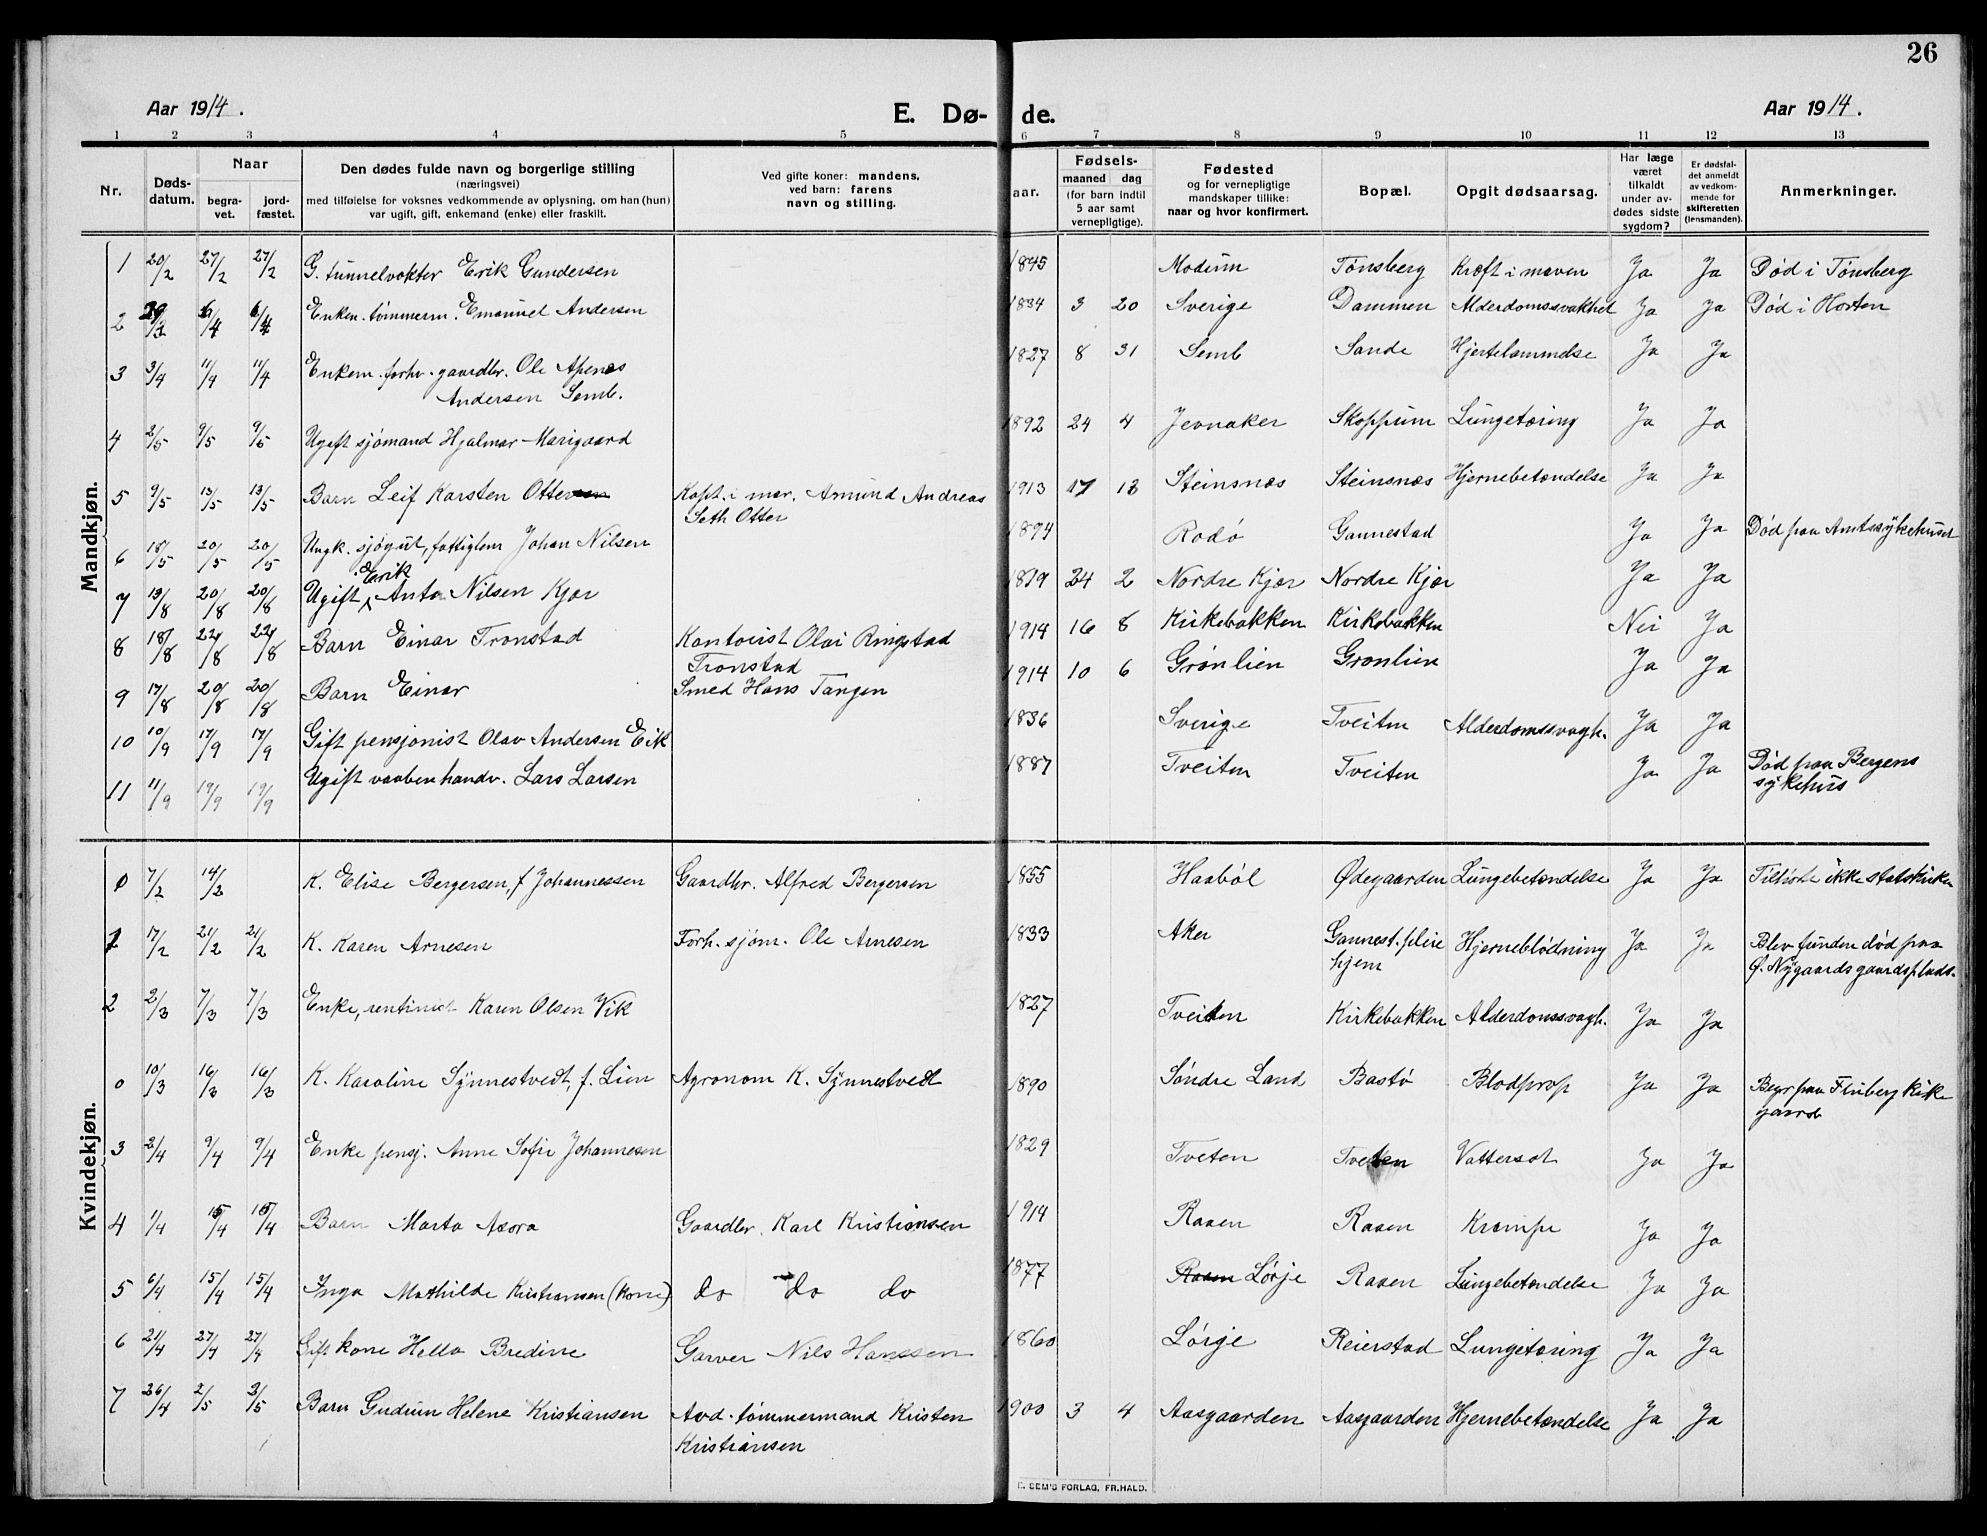 26
Aar 1914.
E. Dø-
de.
Aar 1914.
1 2 3 4 5 6 7 8 9 10 11 12 13
Nr.
Døds-
datum.
Naar
begra-
vet.
jord-
fæstet.
Den dødes fulde navn og borgerlige stilling
(næringsvei)
med tilføielse for voksnes vedkommende av oplysning, om han (hun)
var ugift, gift, enkemand (enke) eller fraskilt.
Ved gifte koner: mandens,
ved barn: farens
navn og stilling.
aar.
Fødsels-
maaned dag
(for barn indtil
5 aar samt
vernepligtige).
Fødested
og for vernepligtige
mandskaper tillike:
naar og hvor konfirmert.
Bopæl.
Opgit dødsaarsag.
Har læge
været
tilkaldt
under av-
dødes sidste
sygdom?
Er dødsfal-
det anmeldt
av vedkom-
mende for
skifteretten
(lensmanden).
Anmerkninger.
Mandkjøn.
1 20/2 27/2 27/2 G. tunnelvokter Erik Gundersen 1845 Modum Tønsberg Kræft i maven Ja Ja Død i Tønsberg
2 6/4 6/4 Enkem. tømmerm. Emanuel Andersen 1834 3 20 Sverige Dammen Alderdomssvakhet Ja Ja Død i Horten
3 3/4 11/4 11/4 Enkem. forhv. gaardbr. Ole Apenæs 1827 8 31 Semb Sande Hjertelammelse Ja Ja
Andersen Semb.
4 2/5 9/5 9/5 Ugift sjømand Hjalmar Marigaard 1892 24 4 Jevnaker Skoppum Lungetæring Ja Ja
5 9/5 13/5 13/5 Barn Leif Karsten Ottersen Kapt. i mar. Amund Andreas 1913 17 13 Steinsnæs Steinsnæs Hjernebetændelse Ja Ja
Seth Otter
6 18/5 20/5 20/5 Ungk. sjøgut, fattiglem Johan Nilsen 1894 Rodø Gannestad Ja Ja Død paa Amtssykehuset
Erik
7 13/8 20/8 20/8 Ugift Anton Nilsen Kjær 1819 24 2 Nordre Kjær Nordre Kjær Ja Ja
8 18/8 22/8 22/8 Barn Einar Tronstad Kontorist Olai Ringstad 1914 16 8 Kirkebakken Kirkebakken Nei Ja
Tronstad
9 17/8 20/8 20/8 Barn Einar Smed Hans Tangen 1914 10 6 Grønlien Grønlien Ja Ja
10 10/9 17/9 17/9 Gift pensjonist Olav Andersen Eik 1836 Sverige Tveiten Alderdomssvagh. Ja Ja
11 11/9 19/9 19/9 Ugift vaabenhandv. Lars Larsen 1887 Tveiten Tveiten Ja Ja Død paa Bergens
sykehus
Kvindekjøn.
0 7/2 14/2 K. Elise Bergersen, f Johannessen Gaardbr. Alfred Bergersen 1855 Haabøl Ødegaarden Lungebetændelse Ja Ja Tilhørte ikke statskirken
1 17/2 21/2 21/2 K. Karen Arnesen Forh. sjøm. Ole Arnesen 1833 Aker Gannest. pleie Hjerneblødning Ja Ja Blev funden død paa
hjem Ø. Nygaards gaardsplads.
2 2/3 7/3 7/3 Enke, rentinist Karen Olsen Vik 1827 Tveiten Kirkebakken Alderdomssvagh. Ja Ja
0 10/3 16/3 16/3 K. Karoline Synnestvedt, f. Lien Agronom K. Synnestvedt 1890 Søndre Land Bastø Blodprop Ja Ja Begr paa Fluberg kirke
gaard
3 2/4 9/4 9/4 Enke pensj. Anne Sofie Johannesen 1829 Tveten Tveten Vattersot Ja Ja
4 1/4 15/4 15/4 Barn Marta Asora Gaardbr. Karl Kristiansen 1914 Raaen Raaen Krampe Ja Ja
5 6/4 15/4 15/4 Inga Mathilde Kristiansen (kone) do do do 1877 Raaen Lørje Raaen Lungebetændelse Ja Ja
6 21/4 27/4 27/4 Gift kone Hella Bredine Garver Nils Hanssen 1860 Lørje Reierstad Lungetæring Ja Ja
7 26/4 2/5 3/5 Barn Gudrun Helene Kristiansen Avd. tømmermand Kristen 1900 3 4 Aasgaarden Aasgaarden Hjernebetændelse Ja Ja
Kristiansen
SEM'S FORLAG, FR.HALD.